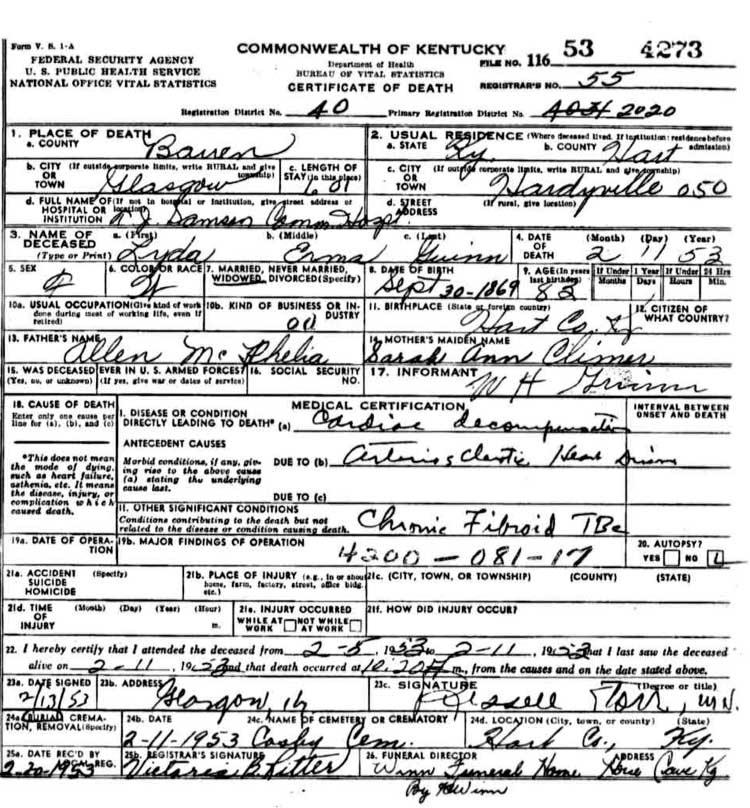 Form V. S. 1-A
FEDERAL SECURITY AGENCY
U. S. PUBLIC HEALTH SERVICE
NATIONAL OFFICE VITAL STATISTICS
COMMONWEALTH OF KENTUCKY
Department of Health
BUREAU OF VITAL STATISTICS
CERTIFICATE OF DEATH
FILE NO. 116 53 4273
REGISTRAR'S NO. 55
Registration District No. 40 Primary Registration District No. 2020
1. PLACE OF DEATH
a. COUNTY Barren
2. USUAL RESIDENCE (Where deceased lived. If institution: residence before admission)
a. STATE Ky. b. COUNTY Hart
b. CITY (If outside corporate limits, write RURAL and give township)
OR TOWN Glasgow
c. LENGTH OF STAY (in this place)
c. CITY (If outside corporate limits, write RURAL and give township)
OR TOWN Hardyville 050
d. FULL NAME OF (If not in hospital or institution, give street address or location)
HOSPITAL OR INSTITUTION Samson Comm. Hospt.
d. STREET ADDRESS (If rural, give location)
3. NAME OF DECEASED (Type or Print)
a. (First) Lyda b. (Middle) Erma c. (Last) Guinn
4. DATE OF DEATH (Month) (Day) (Year) 2 11 53
5. SEX
6. COLOR OR RACE W
7. MARRIED, NEVER MARRIED, WIDOWED, DIVORCED (Specify)
8. DATE OF BIRTH Sept 30-1869
9. AGE (In years last birthday) 82
If Under 1 Year Months Days
If Under 24 Hrs Hours Min.
10a. USUAL OCCUPATION (Give kind of work done during most of working life, even if retired)
10b. KIND OF BUSINESS OR INDUSTRY
11. BIRTHPLACE (State or foreign country) Hart Co. Ky
12. CITIZEN OF WHAT COUNTRY?
13. FATHER'S NAME Allen McPhelia
14. MOTHER'S MAIDEN NAME Sarah Ann Climer
15. WAS DECEASED EVER IN U. S. ARMED FORCES?
(Yes, no, or unknown) (If yes, give war or dates of service)
16. SOCIAL SECURITY NO.
17. INFORMANT W H Guinn
18. CAUSE OF DEATH
Enter only one cause per line for (a), (b), and (c)
*This does not mean the mode of dying, such as heart failure, asthenia, etc. It means the disease, injury, or complication which caused death.
MEDICAL CERTIFICATION
INTERVAL BETWEEN ONSET AND DEATH
I. DISEASE OR CONDITION DIRECTLY LEADING TO DEATH* (a) Cardiac decompensation
ANTECEDENT CAUSES
Morbid conditions, if any, giving rise to the above cause (a) stating the underlying cause last.
DUE TO (b) Heart
DUE TO (c)
II. OTHER SIGNIFICANT CONDITIONS
Conditions contributing to the death but not related to the disease or condition causing death.
Chronic Fibroid TBc
19a. DATE OF OPERATION
19b. MAJOR FINDINGS OF OPERATION
4200-081-17
20. AUTOPSY?
YES NO
21a. ACCIDENT SUICIDE HOMICIDE (Specify)
21b. PLACE OF INJURY (e.g., in or about home, farm, factory, street, office bldg. etc.)
21c. (CITY, TOWN, OR TOWNSHIP) (COUNTY) (STATE)
21d. TIME OF INJURY (Month) (Day) (Year) (Hour) m.
21e. INJURY OCCURRED
WHILE AT WORK NOT WHILE AT WORK
21f. HOW DID INJURY OCCUR?
22. I hereby certify that I attended the deceased from 2-5, 1953 to 2-11, 1953 that I last saw the deceased
alive on 2-11, 1953 and that death occurred at 10:20 m., from the causes and on the date stated above.
23a. DATE SIGNED 2/13/53
23b. ADDRESS Glasgow, Ky
23c. SIGNATURE (Degree or title)
24a. BURIAL, CREMATION, REMOVAL (Specify)
24b. DATE 2-11-1953
24c. NAME OF CEMETERY OR CREMATORY Cosby Cem.
24d. LOCATION (City, town, or county) (State) Hart Co., Ky.
25a. DATE REC'D BY LOCAL REG. 2-20-1953
25b. REGISTRAR'S SIGNATURE Victoria B. Ritter
26. FUNERAL DIRECTOR ADDRESS
Winn Funeral Home Horse Cave Ky
By Winn